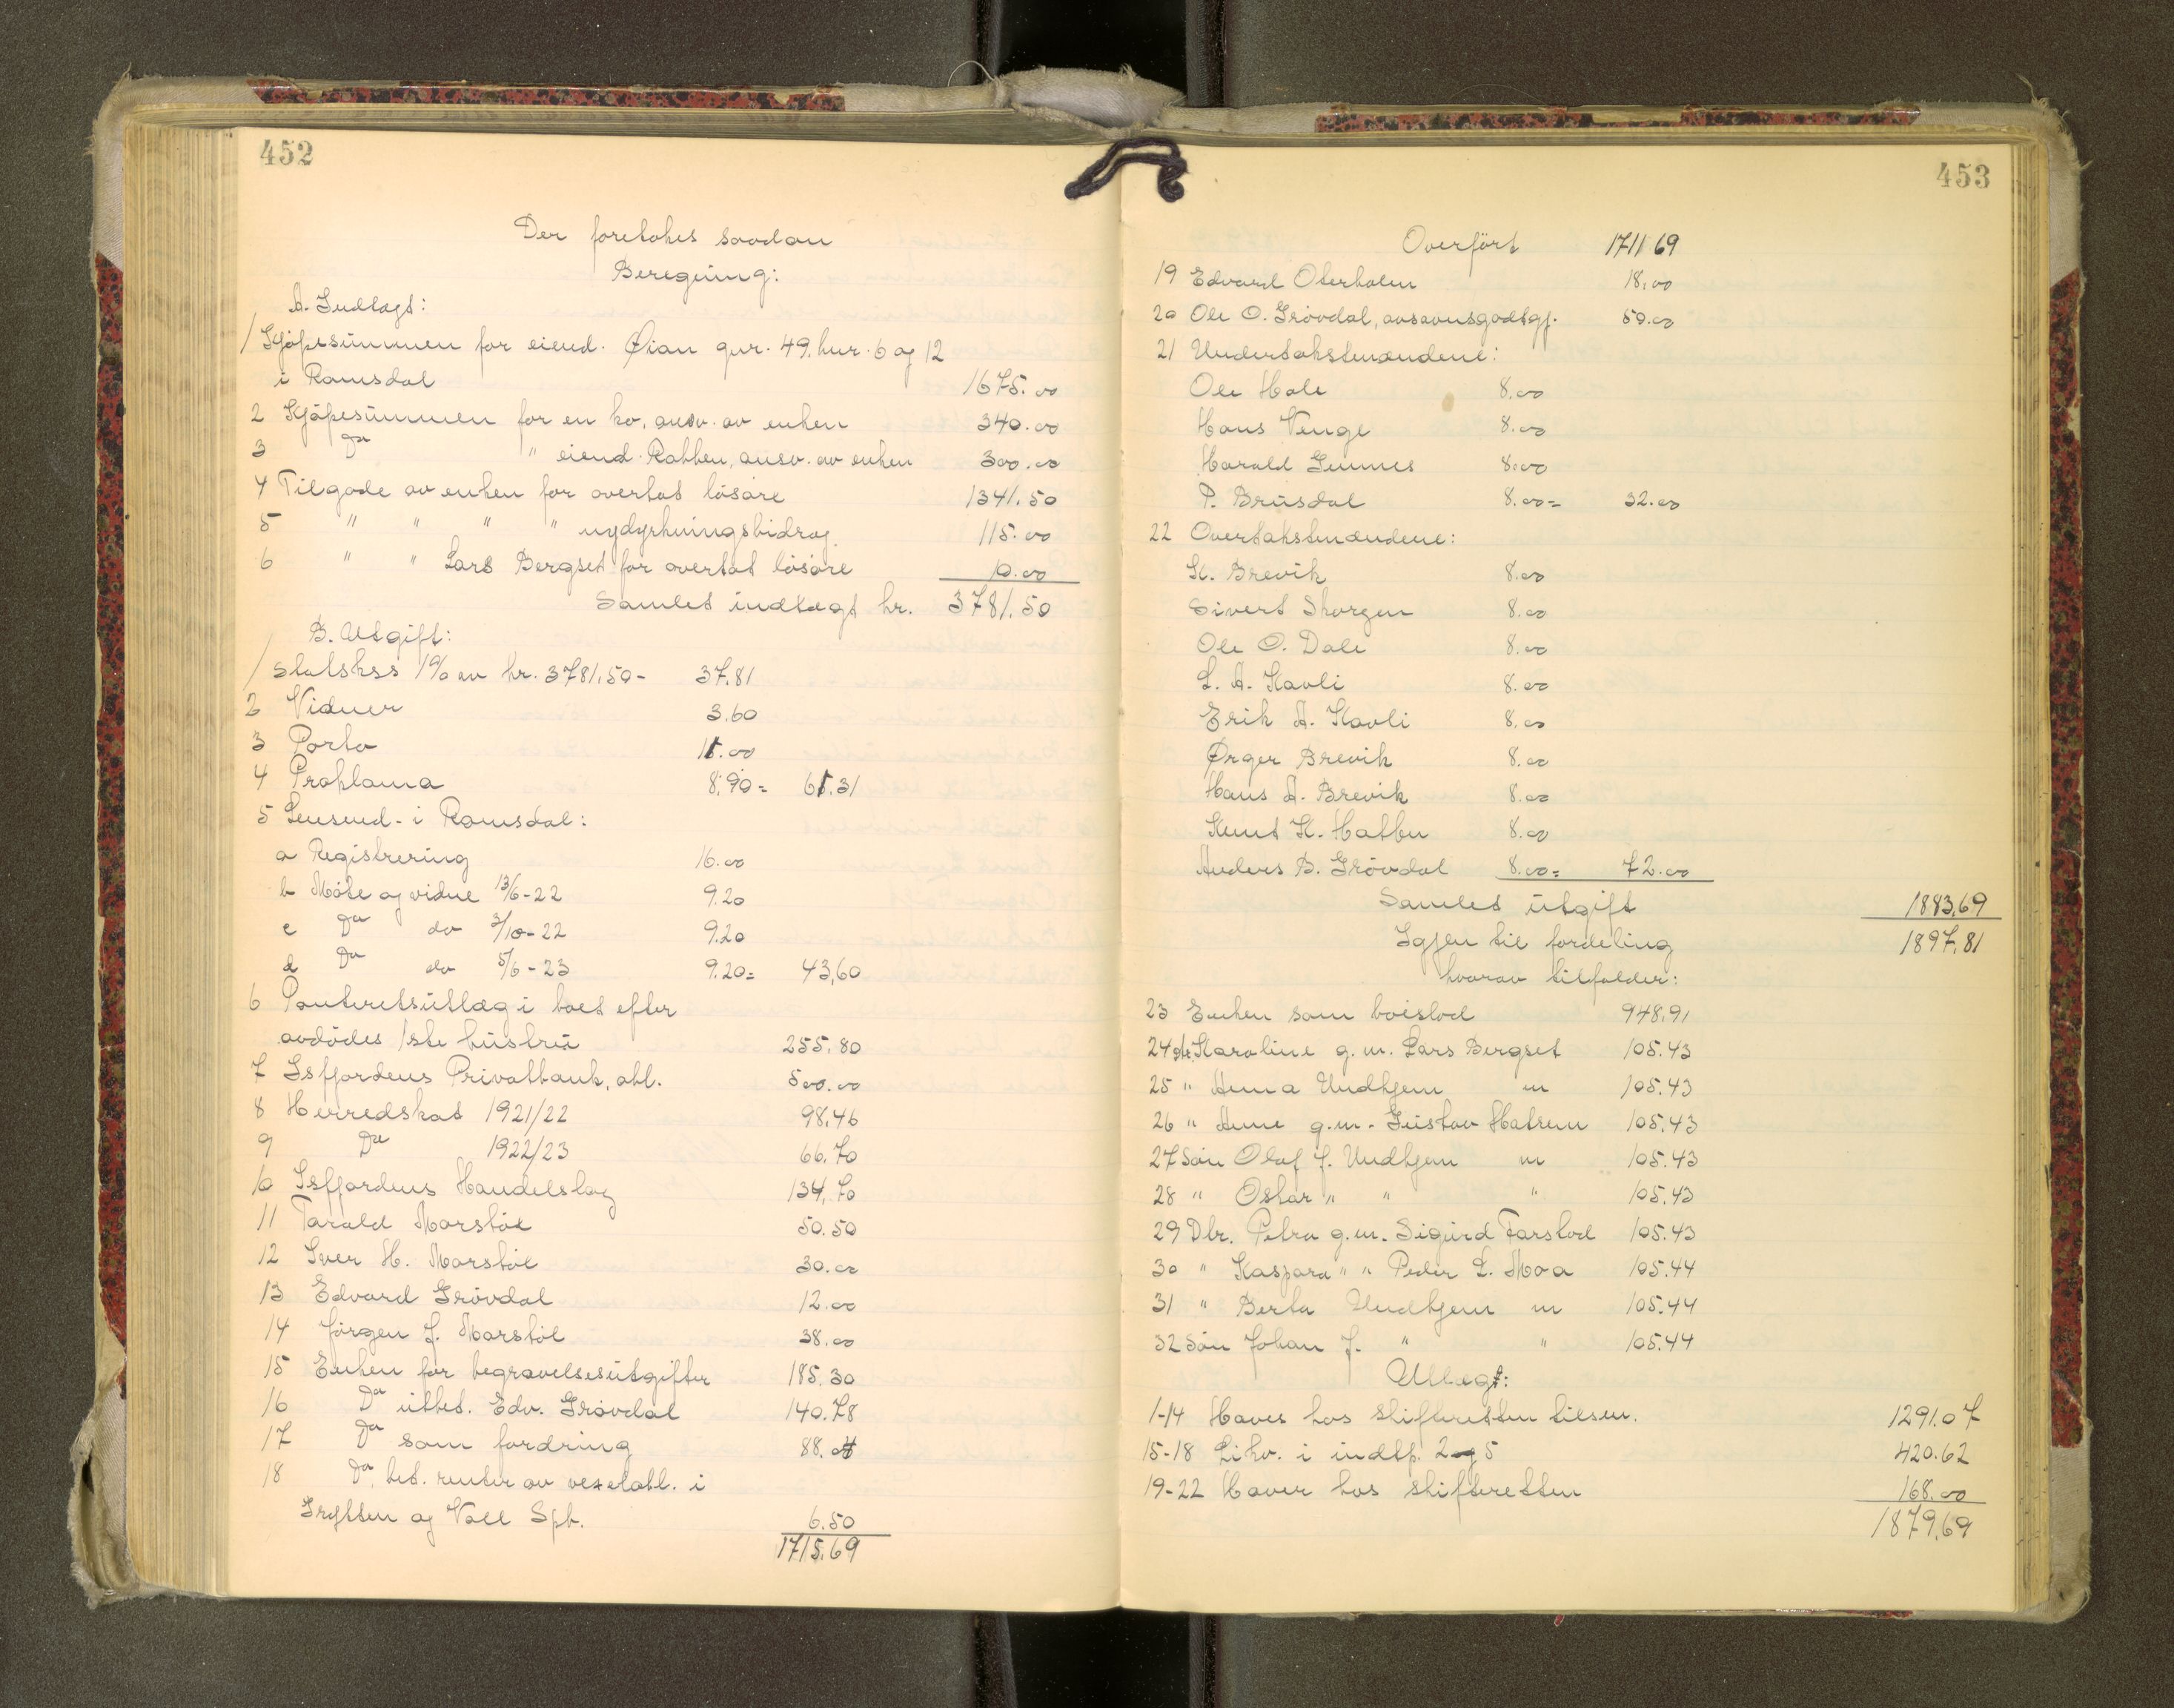 452
Der foretokes saadan
Beregning:
A. Indtægt:
1 Kjøpesummen for eiend. Øian gnr. 49, bnr. 6 og 12
i Romsdal 1675.00
2 Kjøpesummen for en ko, ansv. av enken 340.00
3 Do " eiend. Rabben, ansv. av enken 300.00
4 Tilgode av enken for overtat løsøre 1341.50
5 " " " " nydyrkningsbidrag 115.00
6 " " Lars Bergset for overtat løsøre 10.00
Samlet indtægt kr. 3781.50
B. Utgift:
1 Statskss 1% av kr. 3781.50- 37.81
2 Vidner 3.60
3 Porto 11.00
4 Proklama 8.90= 61.31
5 Lensmd. i Romsdal:
a Registrering 16.00
b Møte og vidne 13/6-22 9.20
c Do do 3/10-22 9.20
d Do do 5/6-23 9.20= 43,60
6 Panteretsutlæg i boet efter
avdødes 1ste hustru 255.80
7 Isfjordens Privatbank, obl. 500.00
8 Herredskat 1921/22 98.46
9 Do 1922/23 66.70
10 Isfjordens Handelslag 134.70
11 Tarald Morstøl 50.50
12 Iver H. Morstøl 30.00
13 Edvard Grøvdal 12.00
14 Jørgen J. Morstøl 38.00
15 Enken for begravelsesutgifter 185.30
16 Do utbet. Edv. Grøvdal 140.78
17 Do som fordring 88.04
18 Do bet. renter av vexelobl. i
Grytten og Voll Spb. 6.50
1715.69
453
Overført 1711 69
19 Edvard Oterholm 18.00
20 Ole O. Grøvdal, avsavnsgodtgj. 50.00
21 Undertakstmændene:
Ole Hole 8.00
Hans Venge 8.00
Harald Gunnes 8.00
P. Brusdal 8.00= 32.00
22 Overtakstmændene:
K. Brevik 8.00
Sivert Skorgen 8.00
Ole O. Dale 8.00
L. A. Kavli 8.00
Erik A. Kavli 8.00
Ørger Brevik 8.00
Hans A. Brevik 8.00
Knut K. Hatben 8.00
Anders B. Grøvdal 8.00= 72.00
Samlet utgift 1883,69
Igjen til fordeling 1897,81
hvorav tilfalder:
23 Enken som boislod 948,91
24 dtr. Karoline g. m. Lars Bergset 105.43
25 " Anna Undhjem m 105.43
26 " Anne g.m. Gustav Hatrem 105.43
27 Søn Olaf J. Undhjem m 105.43
28 " Oskar " " " 105.43
29 Dtr. Petra g. m. Sigurd Farstad 105.43
30 " Kaspara " " Peder L. Moa 105.44
31 " Berta Undhjem m 105.44
32 Søn Johan J. " " 105.44
Utlegt:
1-14 Haves hos skifteretten tilsm. 1291.07
15-18 Likv. i indtp. 2 og 5 420.62
19-22 Haver hos skifteretten 168.00
1879,69